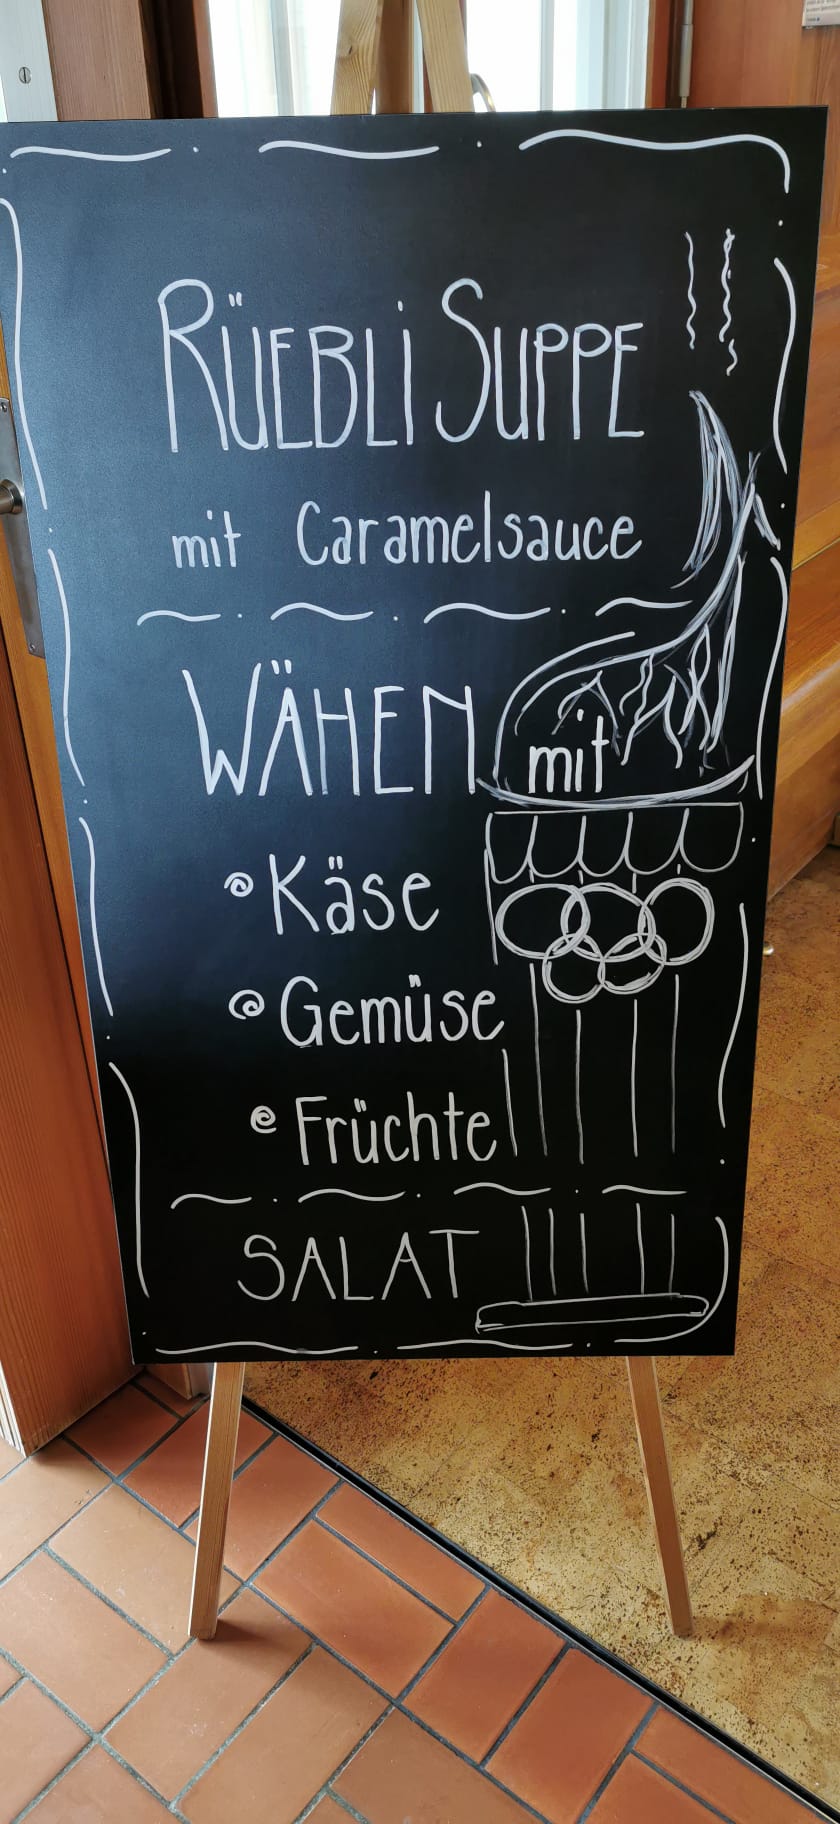 RÜEBLI SUPPE
mit Caramelsauce
WÄHEN mit
Käse
Gemüse
Früchte
SALAT